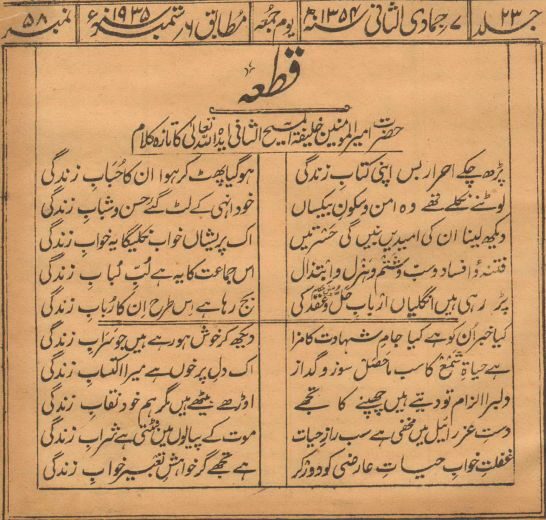 جلد ۲۳ | ۷ جمادی الثانی ۱۳۵۴ھ | یوم جمعہ | مطابق ۶ ستمبر ۱۹۳۵ء | نمبر ۵۸
قطعہ
حضرت امیر المومنین خلیفۃ المسیح الثانی ایدہ اللہ تعالیٰ کا تازہ کلام
پڑھ چکے احرار بس اپنی کتاب زندگی ہو گیا پھٹ کر ہوا ان کا حُبابِ زندگی
لوٹنے نکلے تھے وہ امن و سکونِ بیکساں خود انہی کے لٹ گئے حسن و شبابِ زندگی
دیکھ لینا ان کی امیدیں بنیں گی حسرتیں اک پریشاں خواب نکلیگا یہ خوابِ زندگی
فتنہ و افساد و سبّ و شتم و ہزل و ابتذال اس جماعت کا یہ ہے لُبِّ لُبابِ زندگی
پڑ رہی ہیں انگلیاں اربابِ حل و عقد کی بج رہا ہے اس طرح ان کا رُبابِ زندگی
کیا خبر ان کو ہے کیا جامِ شہادت کا مزا دیکھ کر خوش ہو رہے ہیں جو سرابِ زندگی
ہے حیاۃِ شمع کا سب ماحصل سوز و گداز اک دلِ پر خوں ہے میرا اکتسابِ زندگی
دلبرا الزام تو دیتے ہیں چھپنے کا تجھے اوڑھے بیٹھے ہیں مگر ہم خود نقابِ زندگی
دستِ عزرائیل میں مخفی ہے سب رازِ حیات موت کے پیالوں میں بٹتی ہے شرابِ زندگی
غفلتِ خوابِ حیاتِ عارضی کو دور کر ہے تجھے گر خواہشِ تعبیرِ خوابِ زندگی